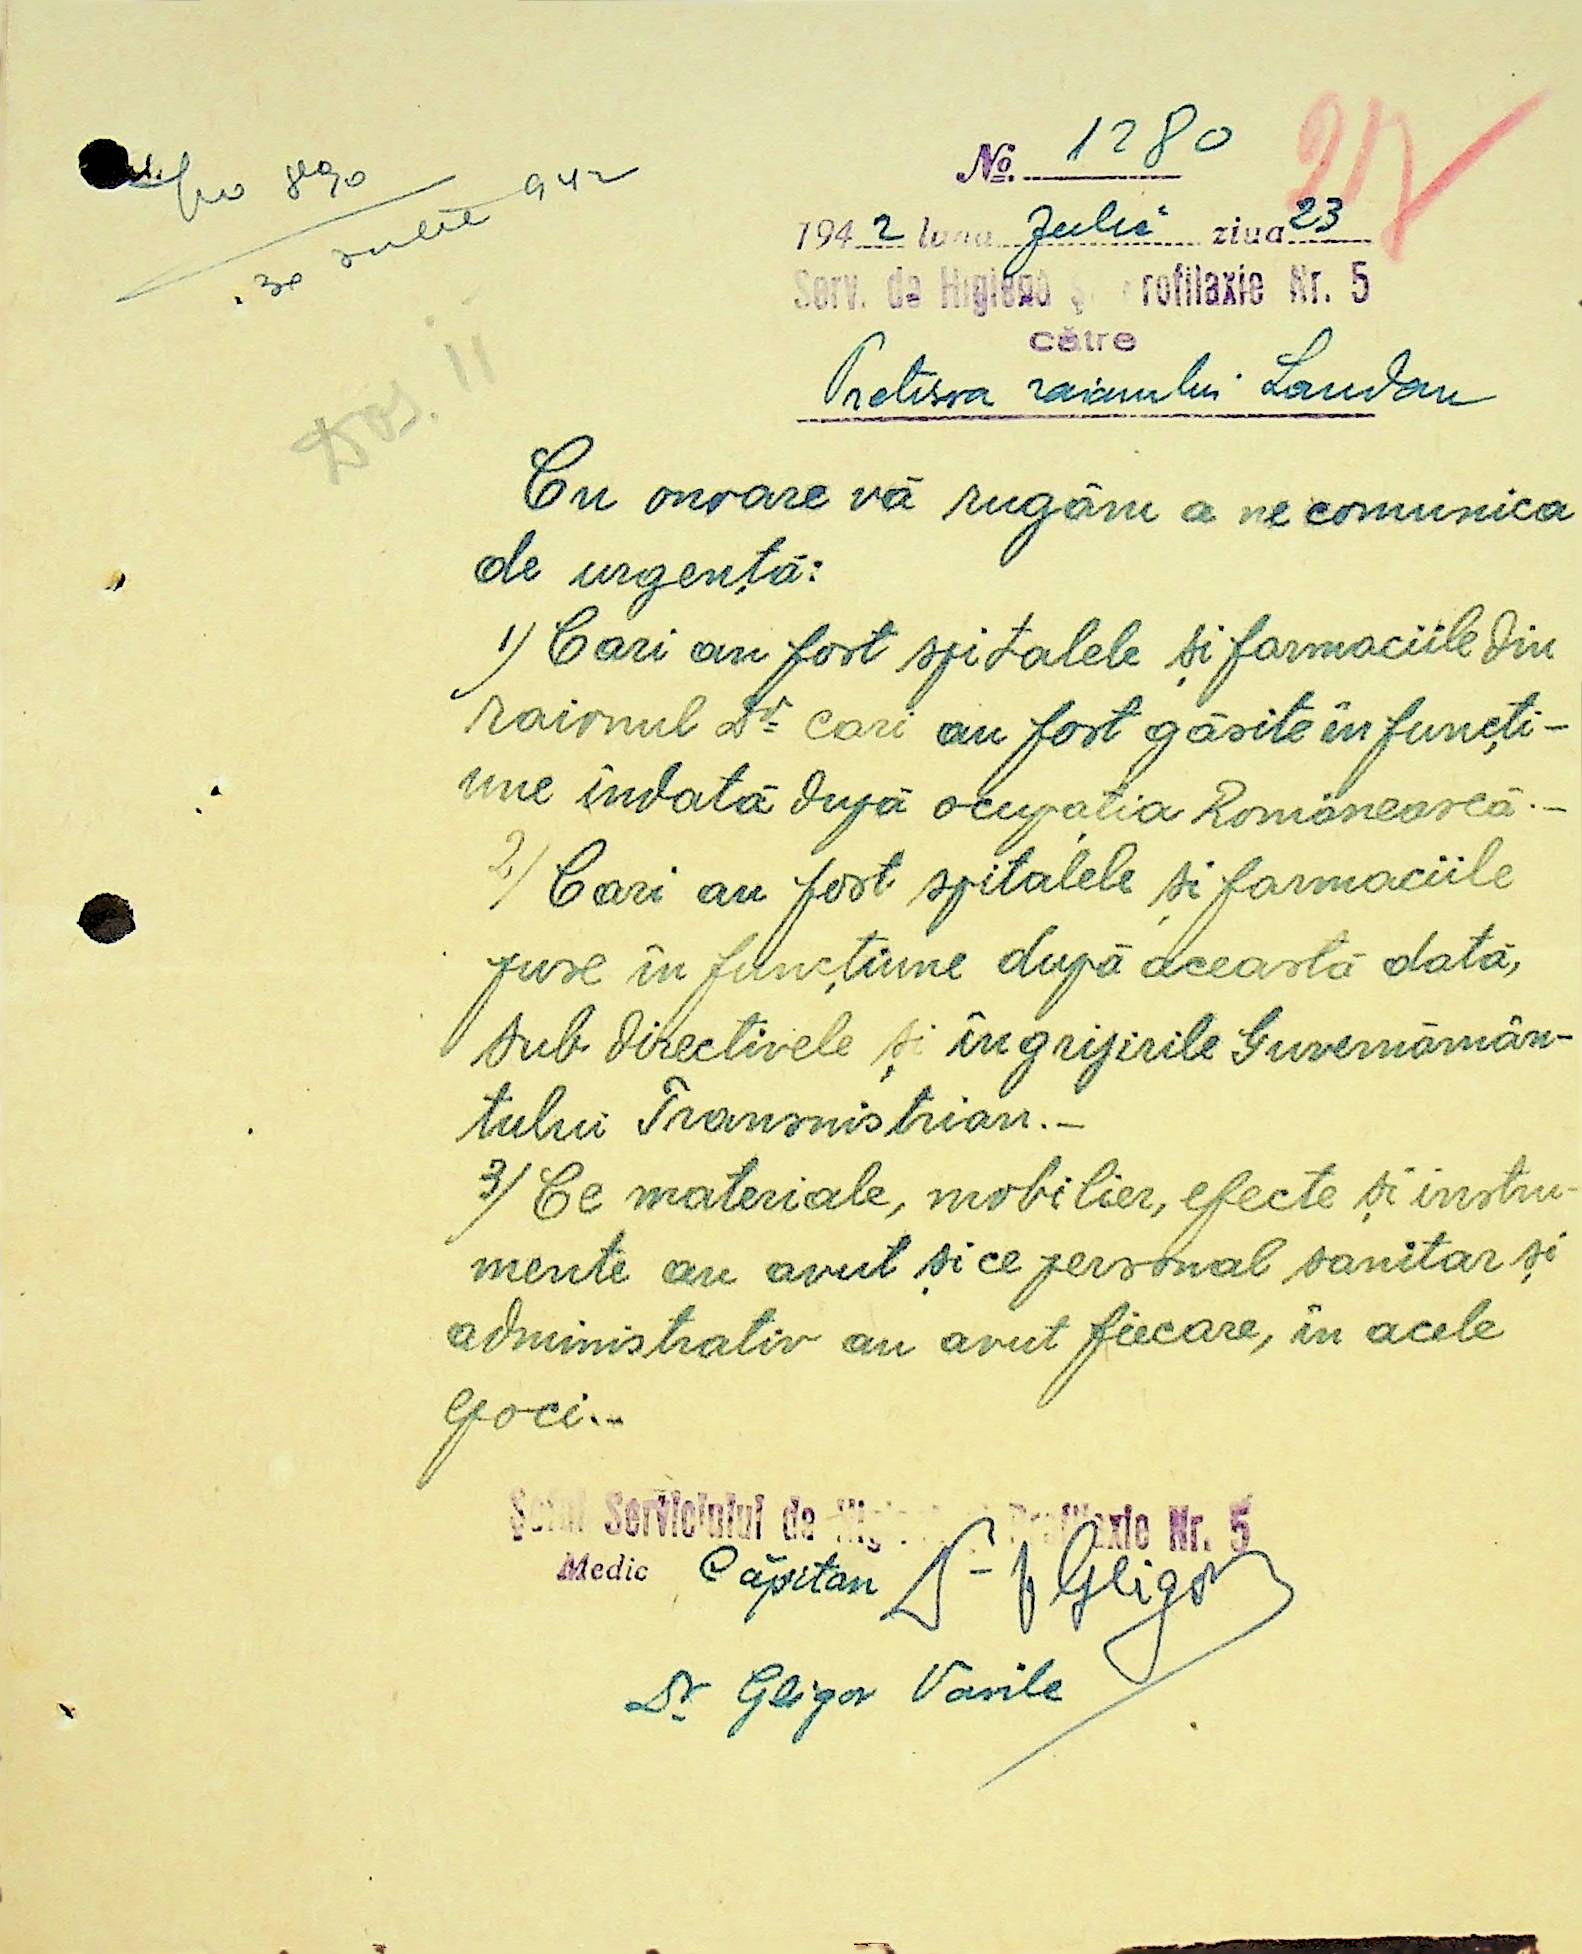 No. 1280
27
1942 luna Julie ziua 23
Serv. de Higienă și Profilaxie Nr. 5
către
Pretura raionului Landau
30 Iulie 942
Dos. 11
Cu onoare vă rugăm a ne comunica
de urgență:
1) Cari au fost spitalele și farmaciile din
raionul Dv. cari au fost găsite în funcți-
une îndată după ocupația Românească.-
2) Cari au fost spitalele și farmaciile
puse în funcțiune după această dată,
sub directivele și îngrijirile Guvernămân-
tului Transnistrian.-
3) Ce materiale, mobilier, efecte și instru-
mente au avut și ce personal sanitar și
administrativ au avut fiecare, în acele
epoci.-
Șeful Serviciului de Higienă și Profilaxie Nr. 5
Medic Căpitan Dr. Gligor
Dr. Gligor Vasile